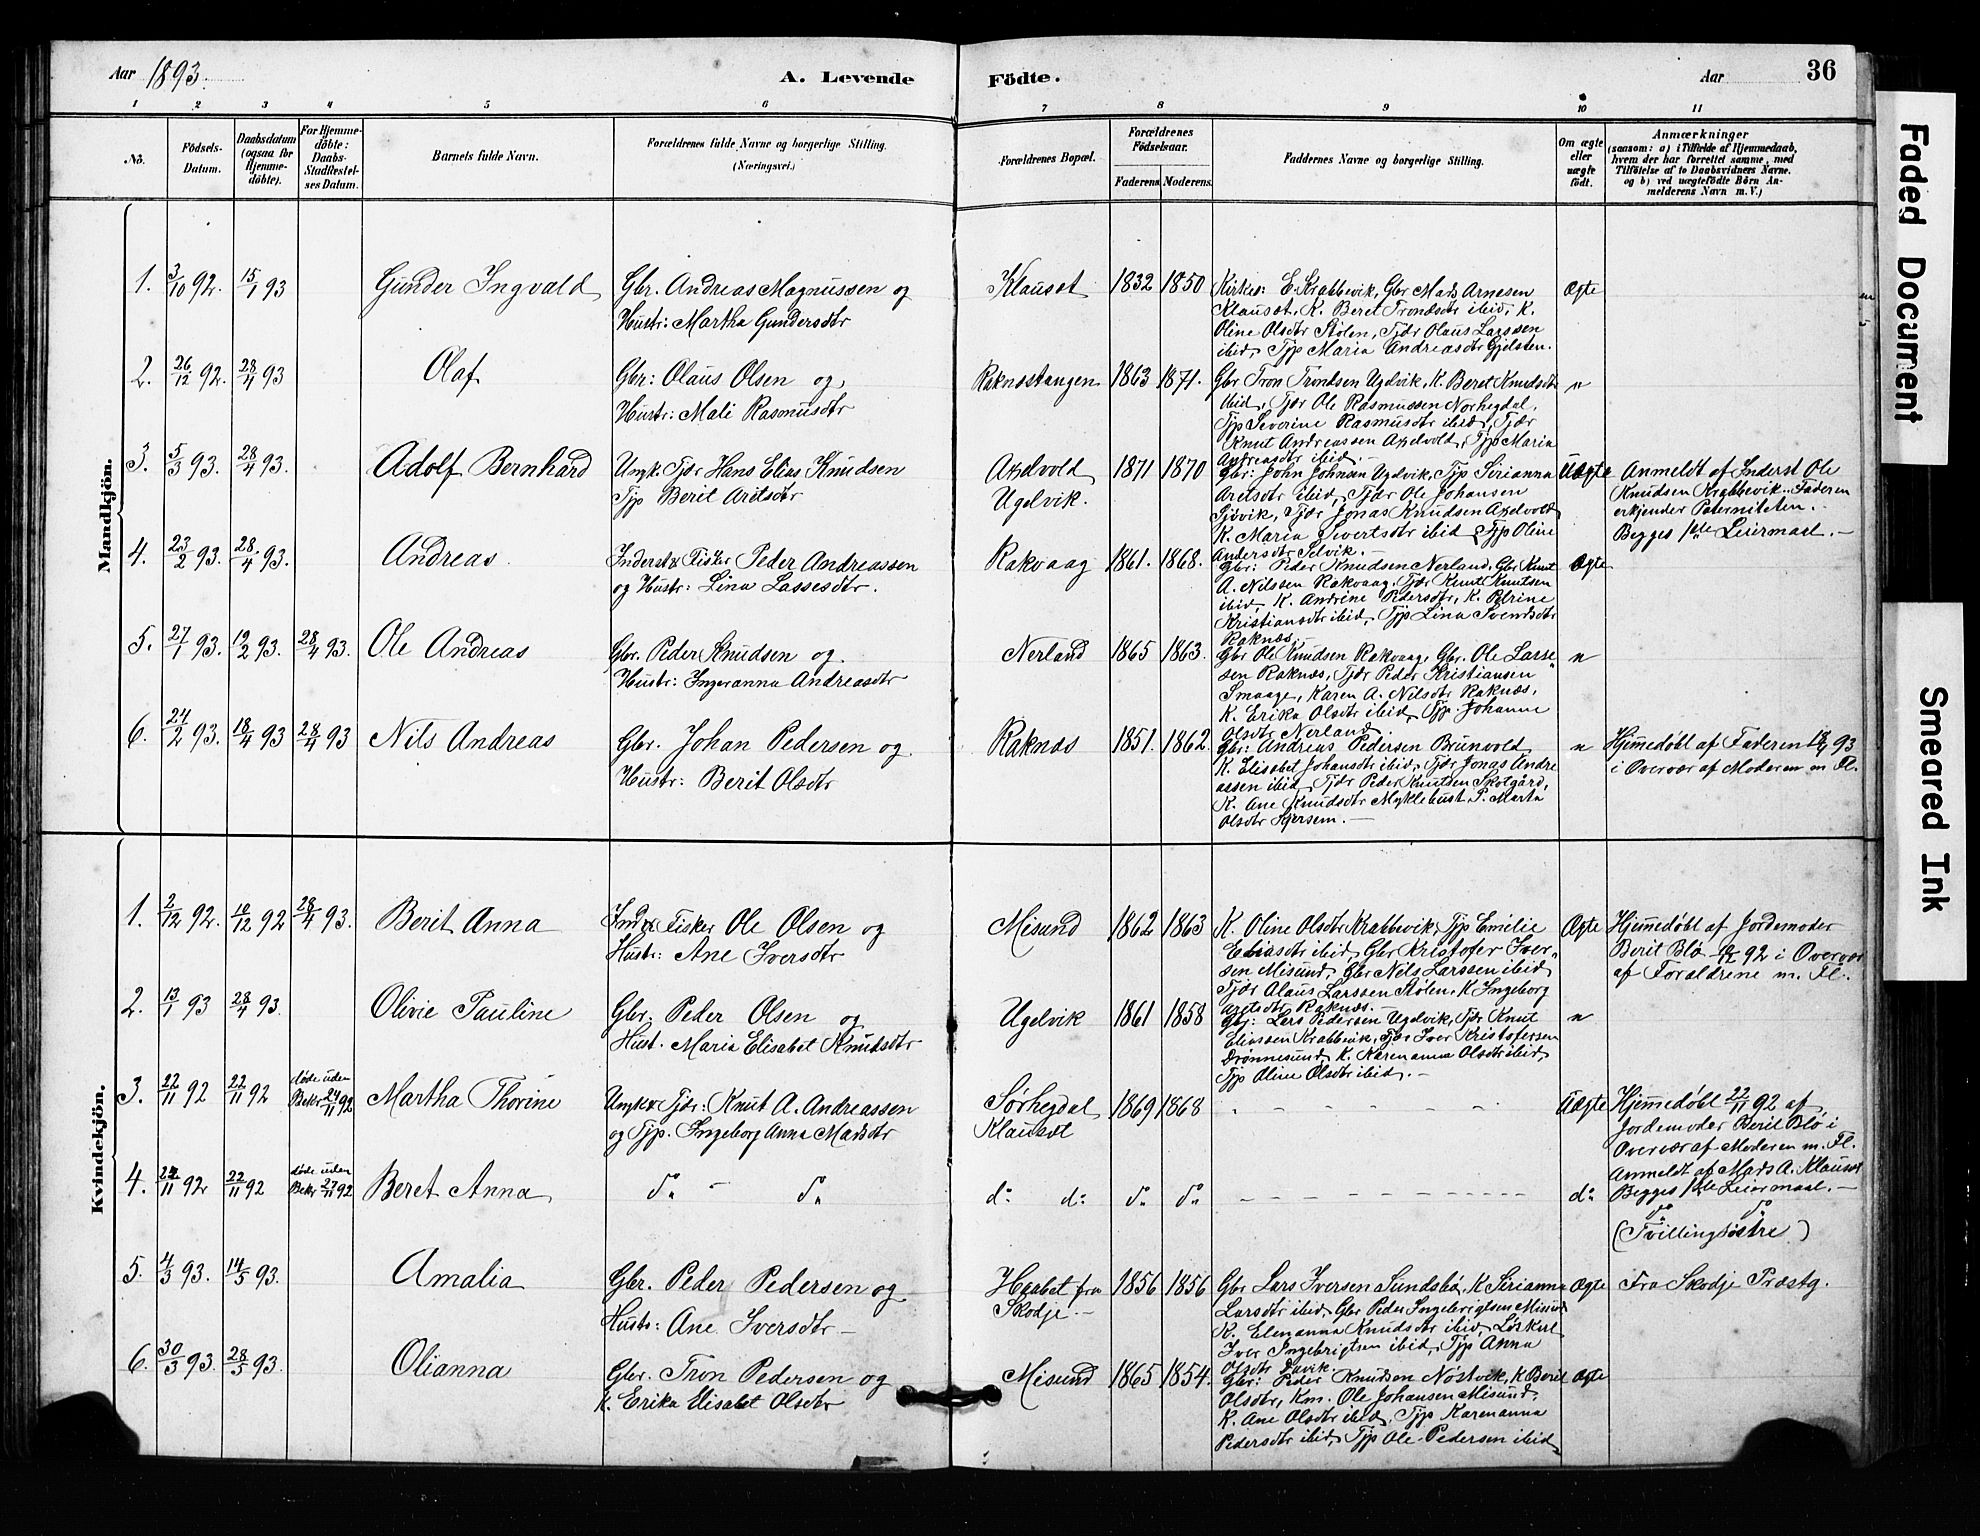 Aar 1893.
A. Levende Födte.
Aar
36
1 2 3 4 5 6 7 8 9 10 11
No.
Födsels-Datum.
Daabsdatum (ogsaa for Hjemmedöbte).
For Hjemmedöbte: Daabs-Stadfestelses Datum.
Barnets fulde Navn.
Forældrenes fulde Navne og borgerlige Stilling.
(Næringsvei.)
Forældrenes Bopæl.
Forældrenes Födselsaar.
Faderens Moderens
Faddernes Navne og borgerlige Stilling.
Om ægte eller uægte födt.
Anmærkninger
(saasom: a) i Tilfælde af Hjemmedaab, hvem der har forrettet samme, med Tilföielse af to Daabsvidners Navne. og b) ved uægtefödte Börn Anmelderens Navn m. V.)
Mandkjön.
1. 3/10 92. 15/1 93 Gunder Ingvald Gbr. Andreas Magnussen og
Hustr: Martha Gundersdtr
Klauset 1832 1850 Kirkes: E. Krabbevik, Gbr Mads Arnesen
Klauset, K. Beret Trondsdtr ibid, K.
Oline Olsdtr Stølen, Tjdr Olaus Larssen
ibid, Tjp Maria Andreasdtr Gjelsten.
Ægte
2. 26/12 92. 28/4 93 Olaf Gbr: Olaus Olsen og
Hustr: Mali Rasmusdtr
Raknestangen 1863 1871. Gbr Tron Trondsen Ugelvik, K. Beret Knudsdtr
ibid, Tjdr Ole Rasmussen Norhegdal,
Tjp Severine Rasmusdtr ibid, Tjdr
Knut Andreassen Axelvold, Tjp Maria
Andreasdtr ibid.
"
3. 5/3 93. 28/4 93. Adolf Bernhard Ungk. Tjdr Hans Elias Knudsen
Tjp Berit Aretsdtr
Axelvold
Ugelvik. 1871 1870 Gbr: John Johnsen Ugelvik, Tjp Serianna
Aretsdtr ibid, Tjdr Ole Johansen
Sjøvik, Tjdr Jonas Knudsen Axelvold
K. Maria Sivertsdtr ibid & Tjp Oline
Andersdtr Selvik.
Uægte Anmeldt af Inderst Ole
Knudsen Krabbevik. Faderen
erkjender Paterniteten.
Begges 1ste Leiermaal.
4. 23/2 93. 28/4 93. Andreas Inderst & Fisker Peder Andreassen
og Hustr: Lina Lassesdtr.
Rakvaag 1861. 1868. Gbr: Peder Knudsen Nerland, Gbr Knut
A. Nilssen Rakvaag, Tjdr Knut Knutsen
ibid, K. Andrine Pedersdtr, K. Petrine
Kristiansdtr ibid, Tjp Lina Svendsdtr
Raknæs.
Ægte
5. 27/1 93. 19/2 93. 28/4 93. Ole Andreas Gbr. Peder Knudsen og
Hustr: Ingeranna Andreasdtr
Nerland 1865 1863. Gbr Ole Knudsen Rakvaag, Gbr. Ole Lasse
sen Raknæs, Tjdr Peder Kristiansen
Smaage, Karen A. Nilsdtr Raknæs,
K. Erika Olsdtr ibid, Tjp. Johanne
Olsdtr Nerland.
"
6. 24/2 93. 18/4 93 28/4 93 Nils Andreas Gbr. Johan Pedersen og
Hustr: Berit Olsdtr
Raknæs 1851. 1862. Gbr: Andreas Pedersen Brunvold
K. Elisabet Johansdtr ibid, Tjdr Jonas Andre
assen ibid, Tjdr Peder Knutsen Skotgård,
K. Ane Knudsdtr Myklebust, P. Marta
Olsdtr Gjersem.
" Hjemedøbt af Faderen 18/4 93
i Overvær af Moderen m. Fl.
Kvindekjön.
1. 2/12 92. 10/12 92 28/4 93. Berit Anna Ind & Fisker Ole Olsen og
Hustr: Ane Iversdtr
Misund 1862 1863 K. Oline Olsdtr Krabbevik, Tjp Emelie
Eliasdtr ibid, Gbr Kristofer Iver
sen Misund, Gbr Nils Larssen ibid
Tjdr Olaus Larssen Stølen, K Ingeborg
Aretsdtr Raknæs.
Ægte Hjemmedøbt af Jordemoder
Berit Blø 10/12 92 i Overvær
af Forældrene m. Fl.
2. 13/1 93 28/4 93. Olivie Pauline Gbr. Peder Olsen og
Hust. Maria Elisabet Knudsdtr
Ugelvik 1861 1858 Gbr: Lars Pedersen Ugelvik, Tjdr Knut
Eliassen Krabbevik, Tjdr Iver Kristofersen
Drønnesund, K. Karenanna Olsdtr ibid,
Tjp Oline Olsdtr ibid.
"
3. 22/11 92 22/11 92 døde uden
Bekr 24/11 92 Martha Thorine Ungk & Tjdr: Knut A. Andreassen
og Tjp. Ingeborg Anna Madsdtr
Sørhegdal
Klauset 1869 1868 Uægte Hjemmedøbt 22/11 92 af
Jordemoder Berit Blø i
Overvær af Moderen m. Fl.
Anmeldt af Mads A. Klauset
Begges 1ste Leiermaal.
4. 22/11 92 22/11 92 døde uden
Bekr 27/11 92 Beret Anna do do
do do do do do do do
(Tvillingsøstre)
5. 4/3 93. 14/5 93. Amalia Gbr. Peder Pedersen og
Hustr: Ane Iversdtr
Haabet fra
Skodje. 1856 1856 Gbr Lars Iversen Sundsbø, K Serianna
Larsdtr ibid, Gbr Peder Ingebrigtsen Misund
K. Elenanna Knudsdtr ibid, Løskarl
Iver Ingebrigtsen ibid, Tjp Anna
Olsdtr Davik.
Ægte Fra Skodje Præstg.
6. 30/3 93. 28/5 93. Olianna Gbr. Tron Pedersen og
K. Erika Elisabet Olsdtr
Misund 1865 1854. Gbr: Peder Knudsen Nøstvik, K Berit
Olsdtr, Km. Ole Johansen Misund,
K. Ane Olsdtr ibid, Tjp Karenanna
Pedersdtr ibid, Tjp Ole Pedersen ibid
Ægte
Faded Document
Smeared Ink